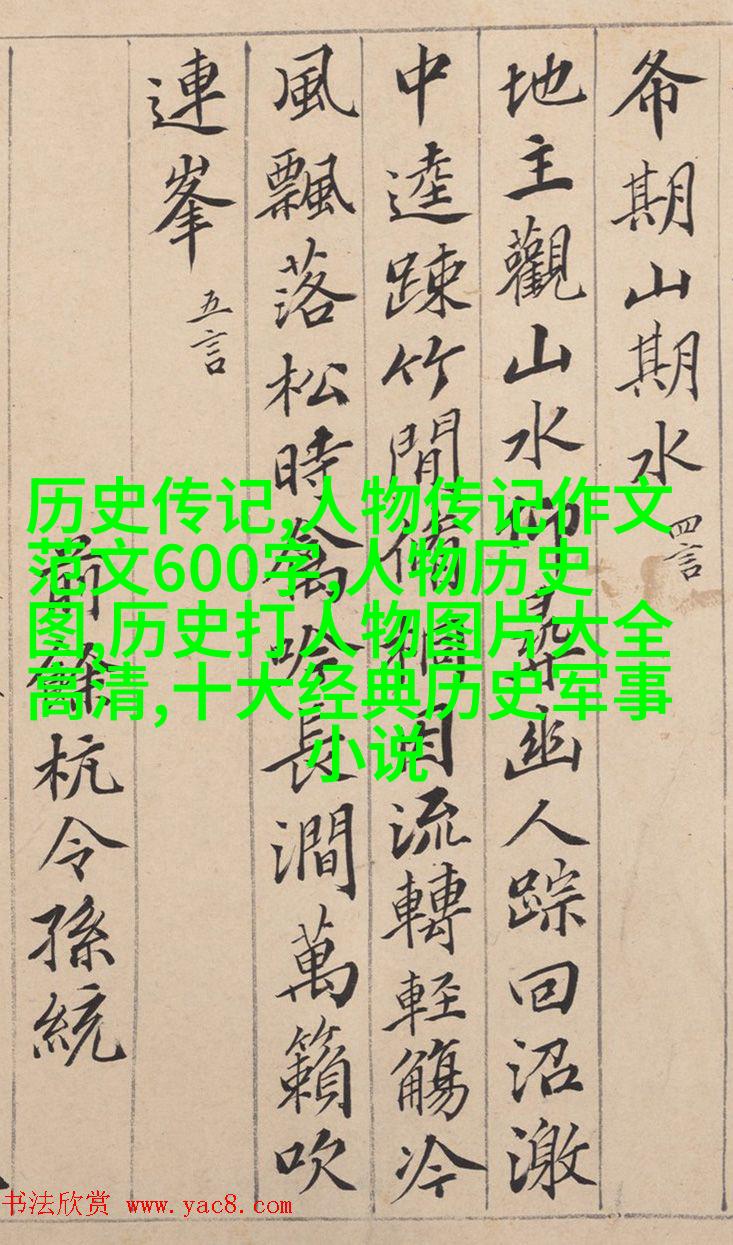 希期山期水 四言
地主觀山水仰尋幽人踪回沼激
中逵踈竹間脩桐因流轉輕觴冷
風飄落松時禽吟長澗萬籟吹
連峯 五言
前餘杭令孫統
历史传记,人物传记作文
范文600字,人物历史
图,历史打人物图片大全
高清,十大经典历史军事
小说
书法欣赏 www.yac8.com